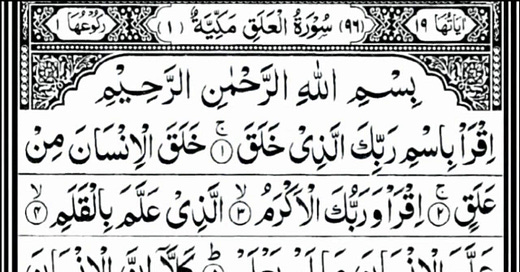 اٰيَاتُهَا ١٩ (٩٦) سُوْرَةُ الْعَلَقِ مَكِّيَّةٌ (١) رُكُوْعُهَا ١
بِسْمِ اللّٰهِ الرَّحْمٰنِ الرَّحِيْمِ
اِقْرَاْ بِاسْمِ رَبِّكَ الَّذِىْ خَلَقَ ۚ﴿١﴾ خَلَقَ الْاِنْسَانَ مِنْ
عَلَقٍ ۚ﴿٢﴾ اِقْرَاْ وَرَبُّكَ الْاَكْرَمُ ۙ﴿٣﴾ الَّذِىْ عَلَّمَ بِالْقَلَمِ ۙ﴿٤﴾
عَلَّمَ الْاِنْسَانَ مَا لَمْ يَعْلَمْ ؕ كَلَّاۤ اِنَّ الْاِنْسَانَ